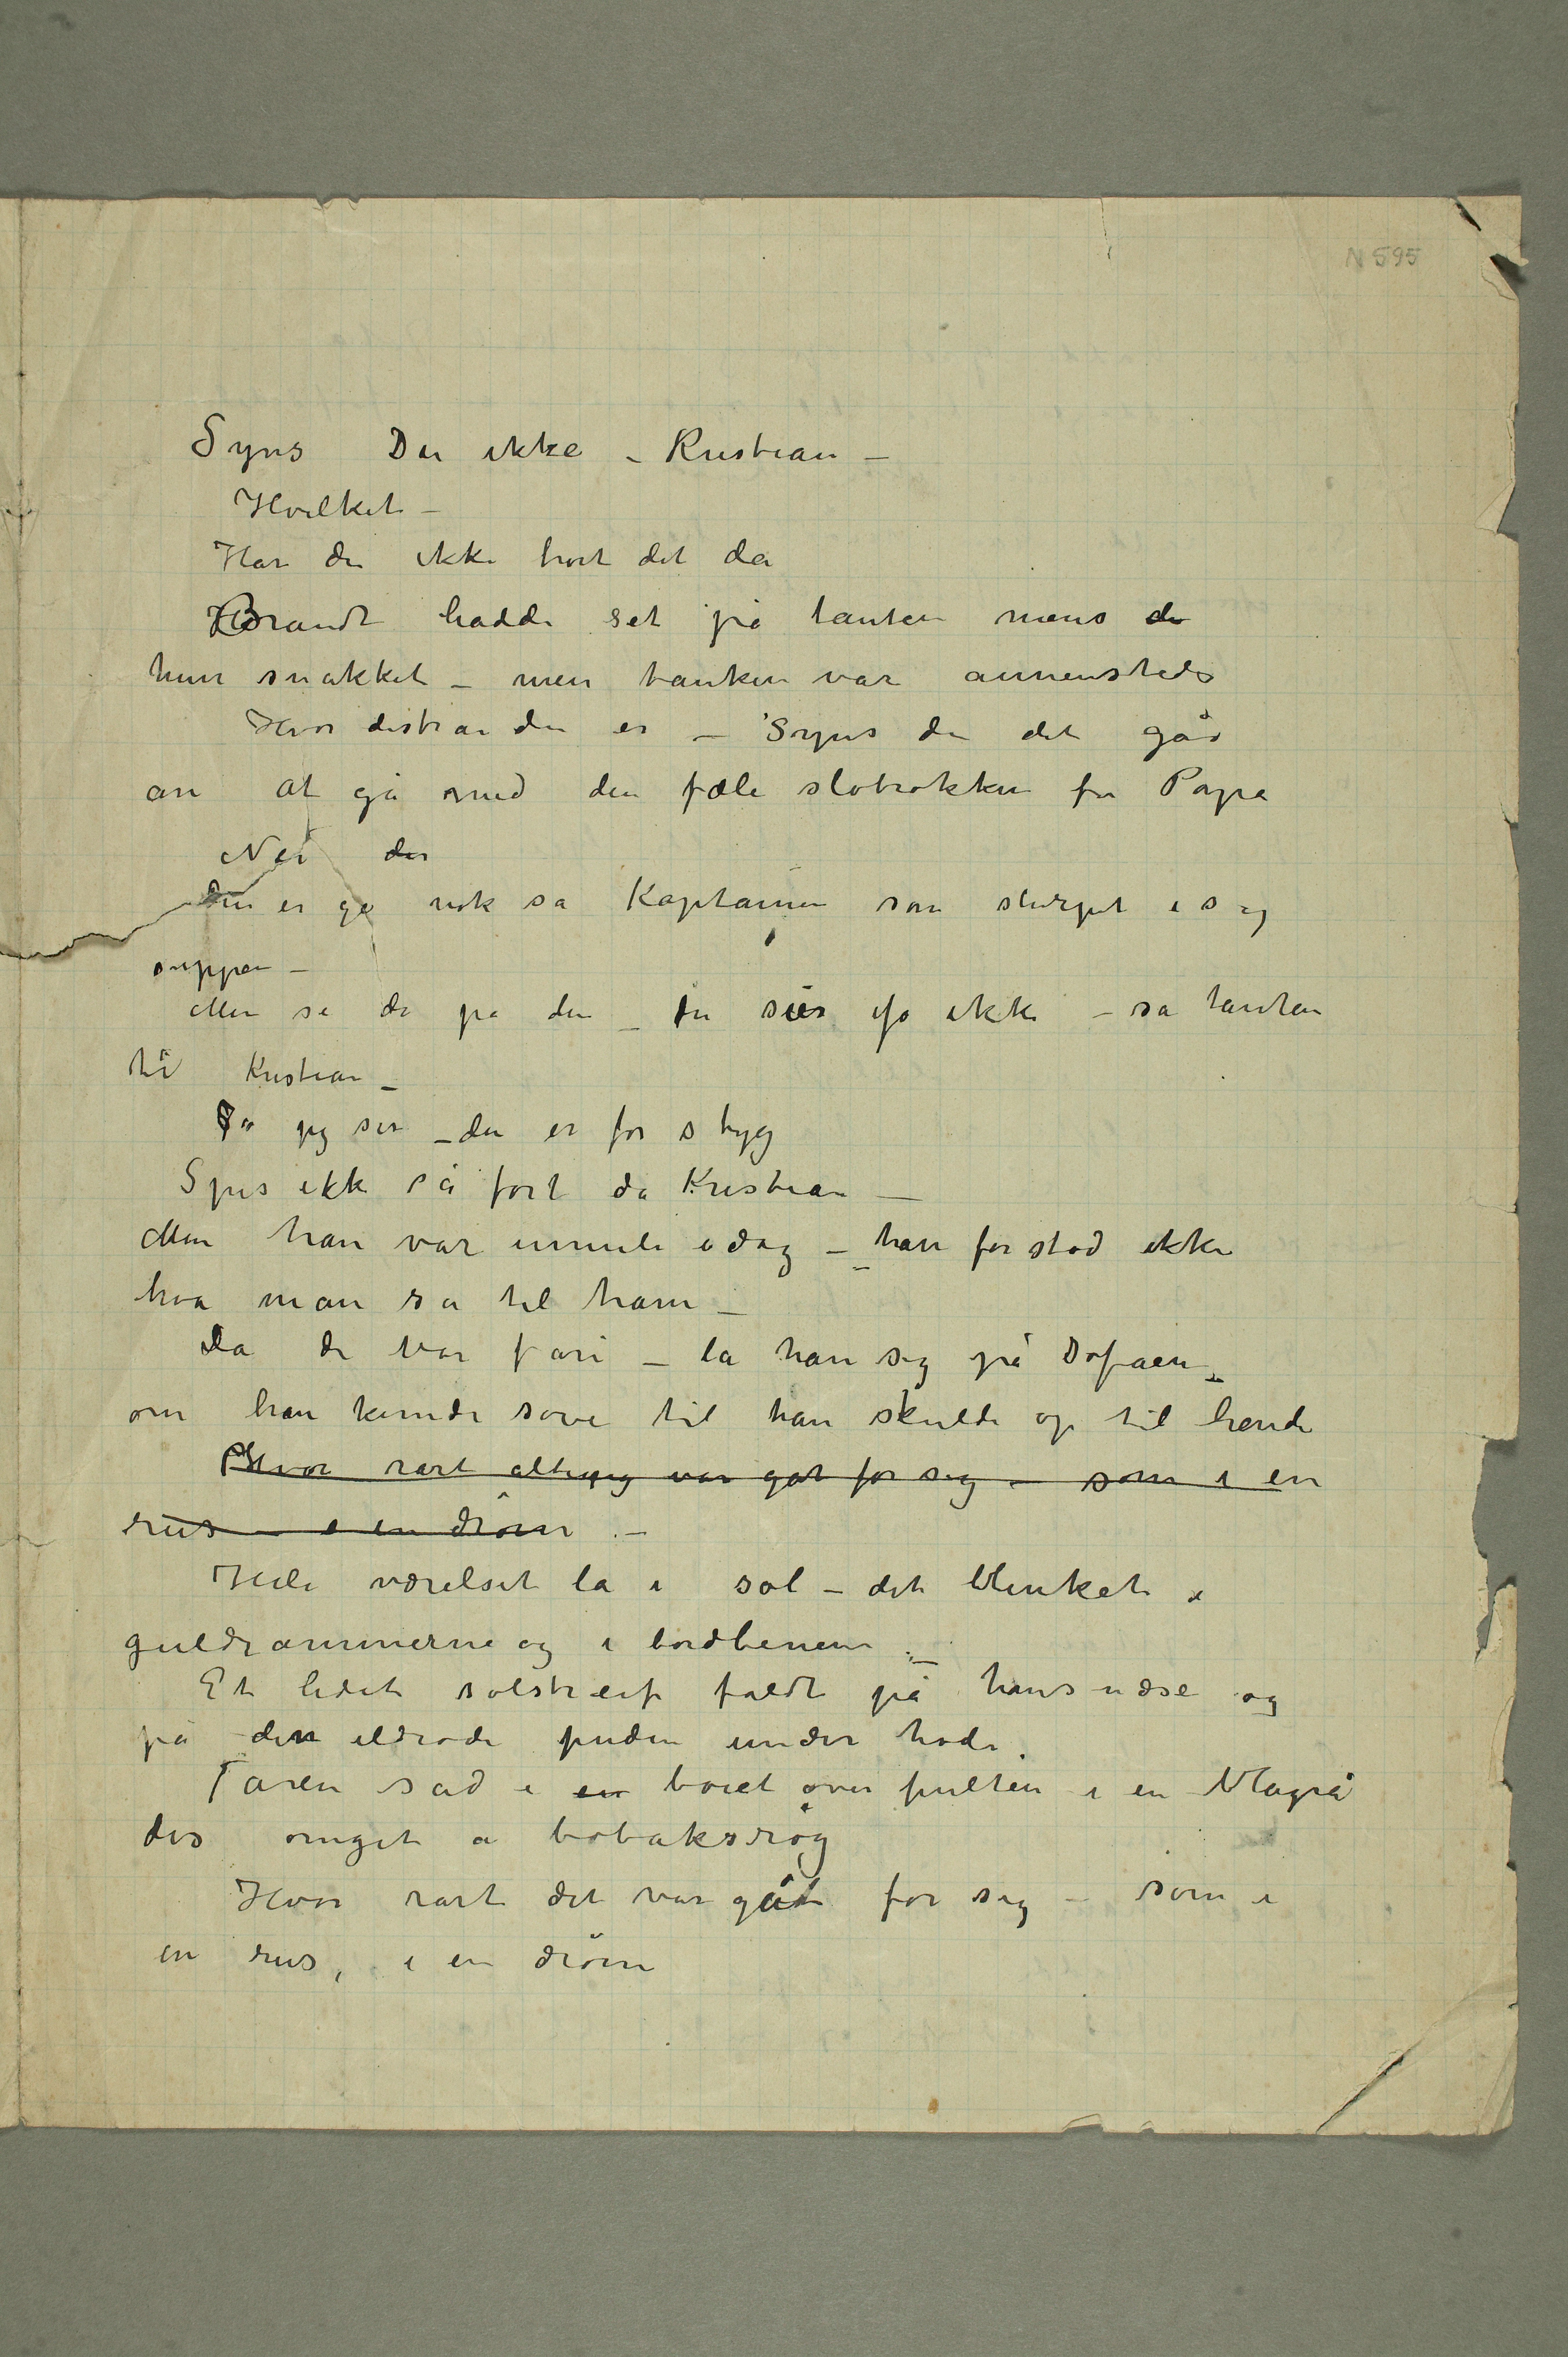 N 595
Syns Du ikke – Kristian –
Hvilket –
Har du ikke hørt det da
Brandt hadde set på tanten mens de
hun snakket – men tanken var annensteds
Hvor distrai du er – Syns du det går
an at gå med den fæle slobrokken for Papa
Nei der
Den er go nok sa Kaptainen som slurpet i sig
suppen –
Men se da på den – Du ser jo ikke – sa tanten
til Kristian –
Jo jeg ser – den er for styg
Spis ikke så fort da Kristian –
Men han var umuli idag – han forstod ikke
hva man sa til ham –
Da de var færi – la han sig på Sofaen –
om han kunde sove til han skulde op til hende
Hvor rart alting var gåt for sig – som i en
rus – i en drøm –
Hele værelset la i sol – det blinket i
guldrammerne og i bordbenene –
Et lidet solstreif faldt på hans næse og
på den ildrøde puden under hode.
Faren sad i en bøiet over pulten i en blagrå
dis omget a tobaksrøg
Hvor rart det var gåt for sig – som i
en rus, i en drøm